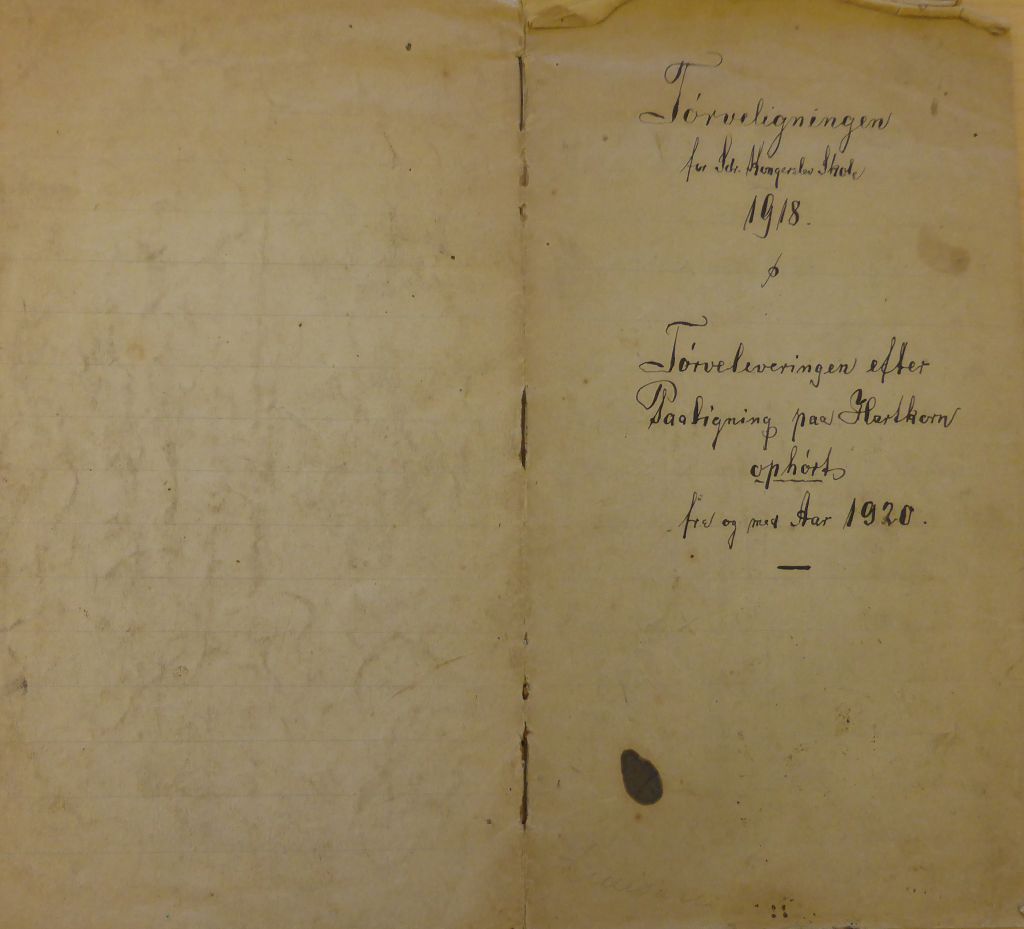 Tørveligningen
for Sdr. Kongerslev Skole
1918.
Tørveleveringen efter
Paaligning paa Hartkorn
ophørt
fra og med Aar 1920.